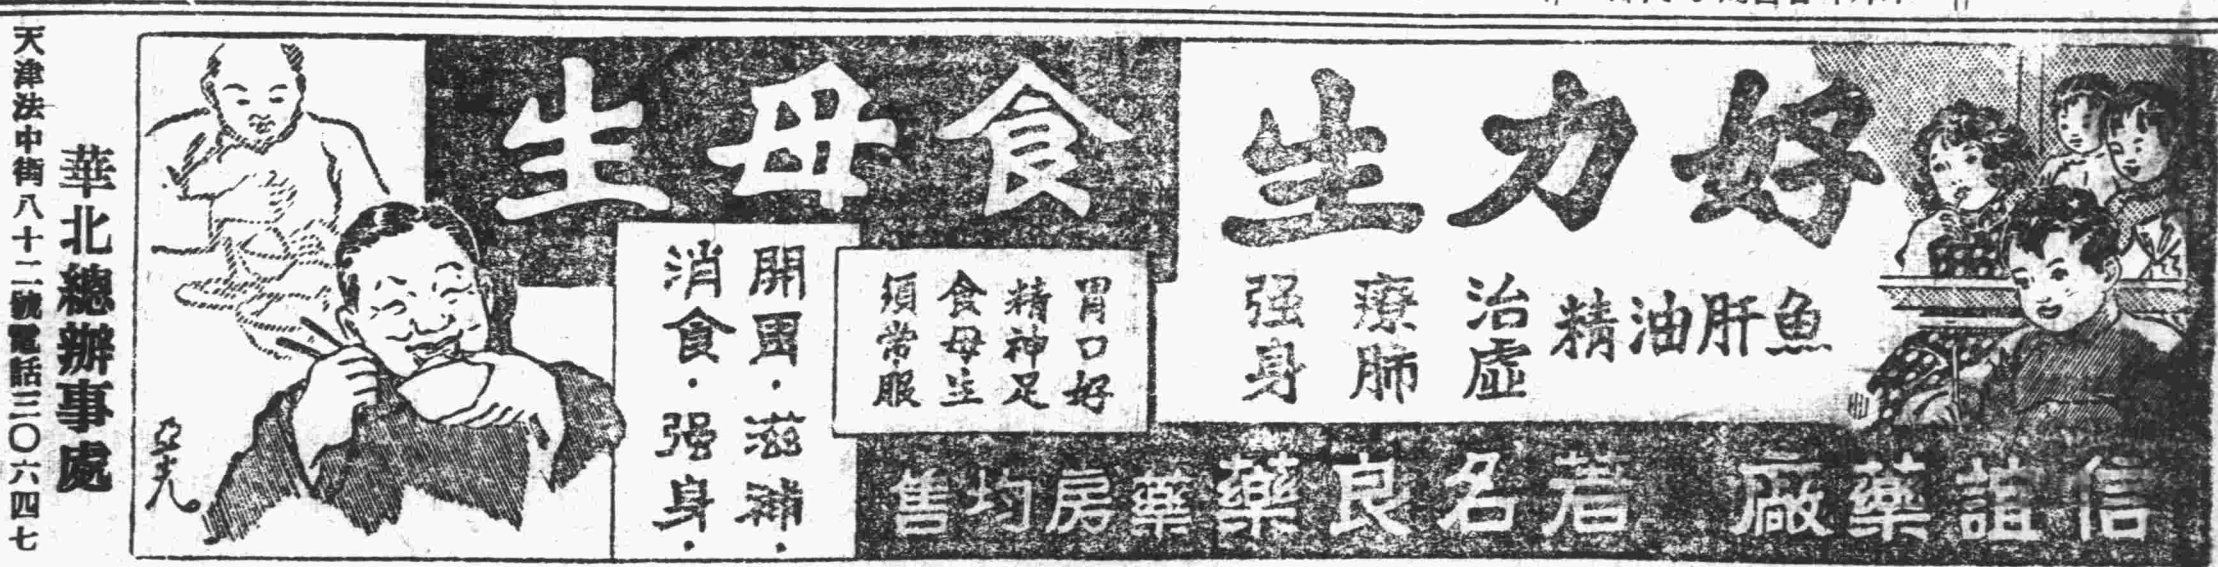 好力生
魚肝油精
治虛
療肺
强身
食母生
胃口好
精神足
食母生
須常服
開胃・滋補・
消食・强身・
信誼藥廠 著名良藥 藥房均售
亞光
華北總辦事處
天津法中街八十二號電話三〇六四七